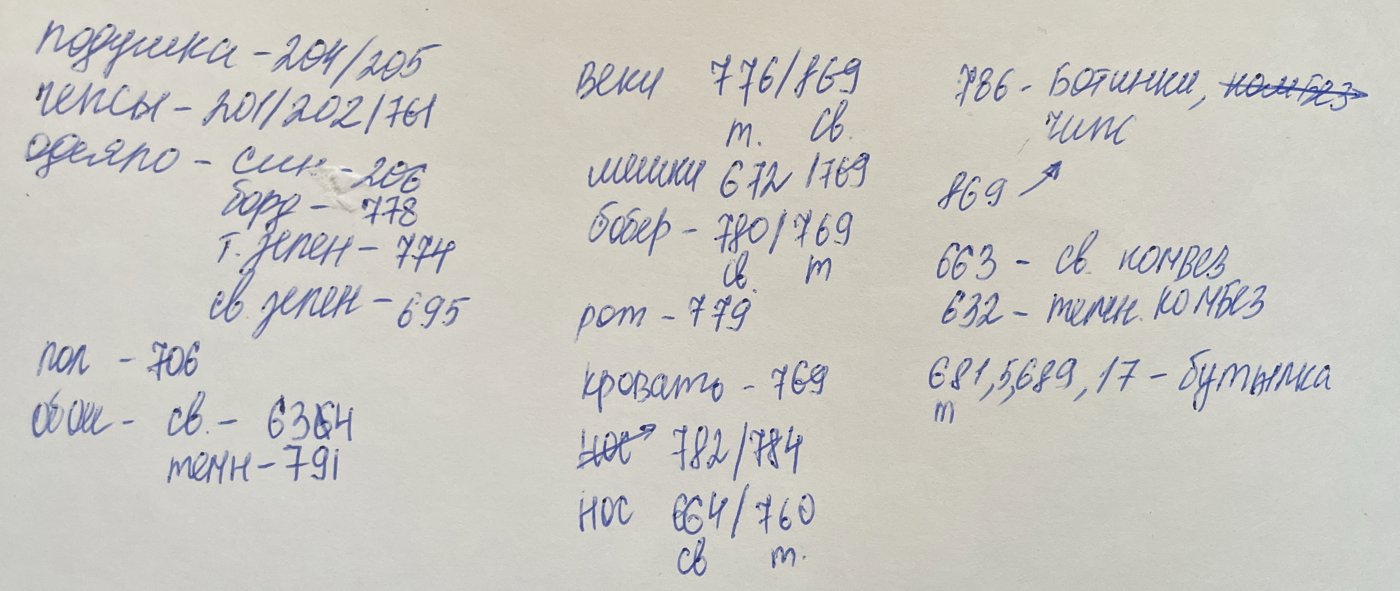 подушка - 204/205
чипсы - 201/202/761
одеяло - син. - 206
борд - 778
т. зелен - 774
св. зелен - 695
пол - 706
обои - св. - 6364
темн - 791
веки 776/869
т. св.
мешки 672/769
бобер - 780/769
св. т
рот - 779
кровать - 769
нос 782/784
нос 664/760
св т.
786 - Ботинки, комбез
чипс
869
663 - св. комбез
632 - темн. комбез
681, 5, 689, 17 - бутылка
т